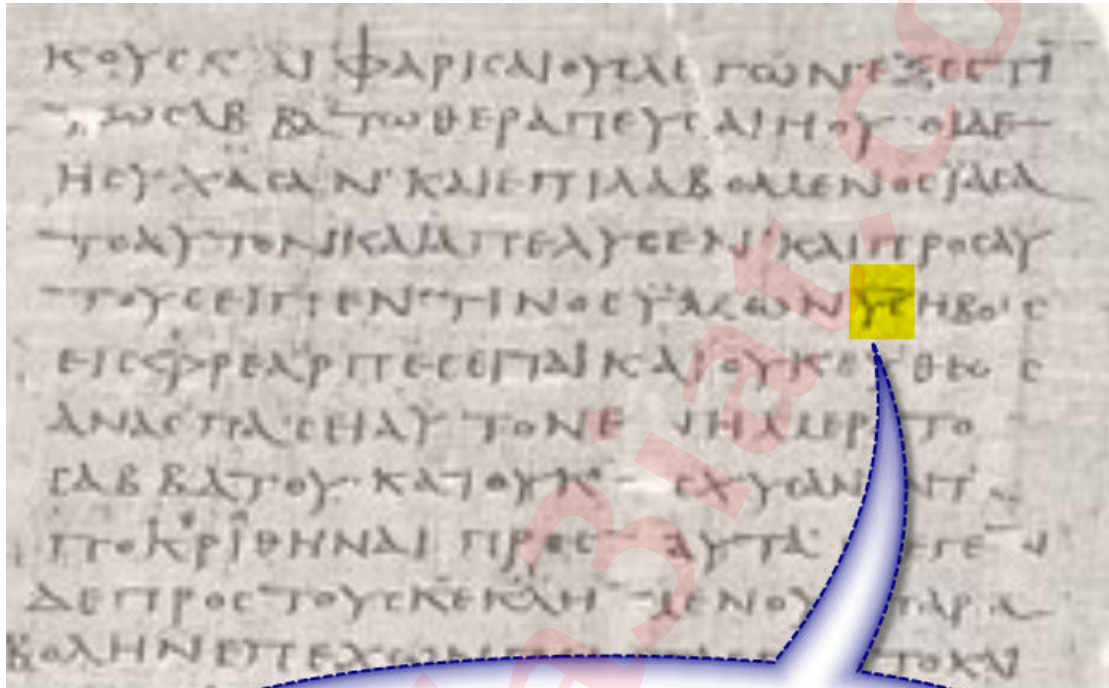 κουσκ αι φαρισαιουσλεγωνεξεστι
τωσαββατωθεραπευσαιηου οιδε
ησυχασαν καιεπιλαβομενοσιασα
τοαυτονκαιαπελυσεν καιπροσαυ
τουσειπεν τινοσυμων υσ ηβουσ
εισφρεαρπεσειται και ουκευθεωσ
ανασπασηαυτονε νημερ το
σαββατου και ουκ ισχυσαν αντ
ποκριθηναι προσ αυτα ελεγεν
δεπροστουσκεκλη μενου παρα
βολην επεχων